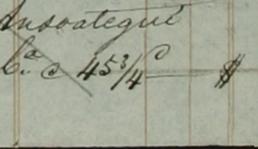 Ansoategui
C.ª c 45¾ c $